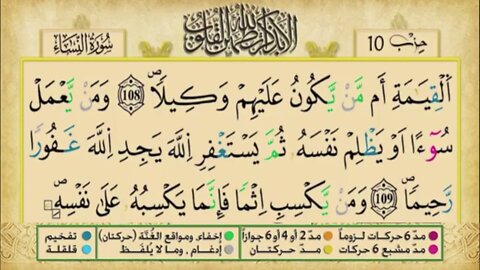 حِزْب 10 أَلَا بِذِكْرِ اللَّهِ تَطْمَئِنُّ الْقُلُوبُ سُورَةُ النِّسَاءِ
اَلْقِيَٰمَةِ أَم مَّنْ يَّكُونُ عَلَيْهِمْ وَكِيلاًۖ 108 وَمَنْ يَّعْمَلْ
سُوٓءاً اَوْ يَظْلِمْ نَفْسَهُۥ ثُمَّ يَسْتَغْفِرِ اِللَّهَ يَجِدِ اِللَّهَ غَفُوراً
رَّحِيماًۖ 109 وَمَنْ يَّكْسِبِ اِثْماً فَإِنَّمَا يَكْسِبُهُۥ عَلَىٰ نَفْسِهِۦۖ
مدّ 6 حركات لزوماً مدّ 2 أو 4 أو 6 جوازاً إخفاء، ومواقع الغُنَّة (حركتان) تفخيم
مدّ مشبع 6 حركات مدّ حركتان إدغام، وما لا يُلفَظ قلقلة